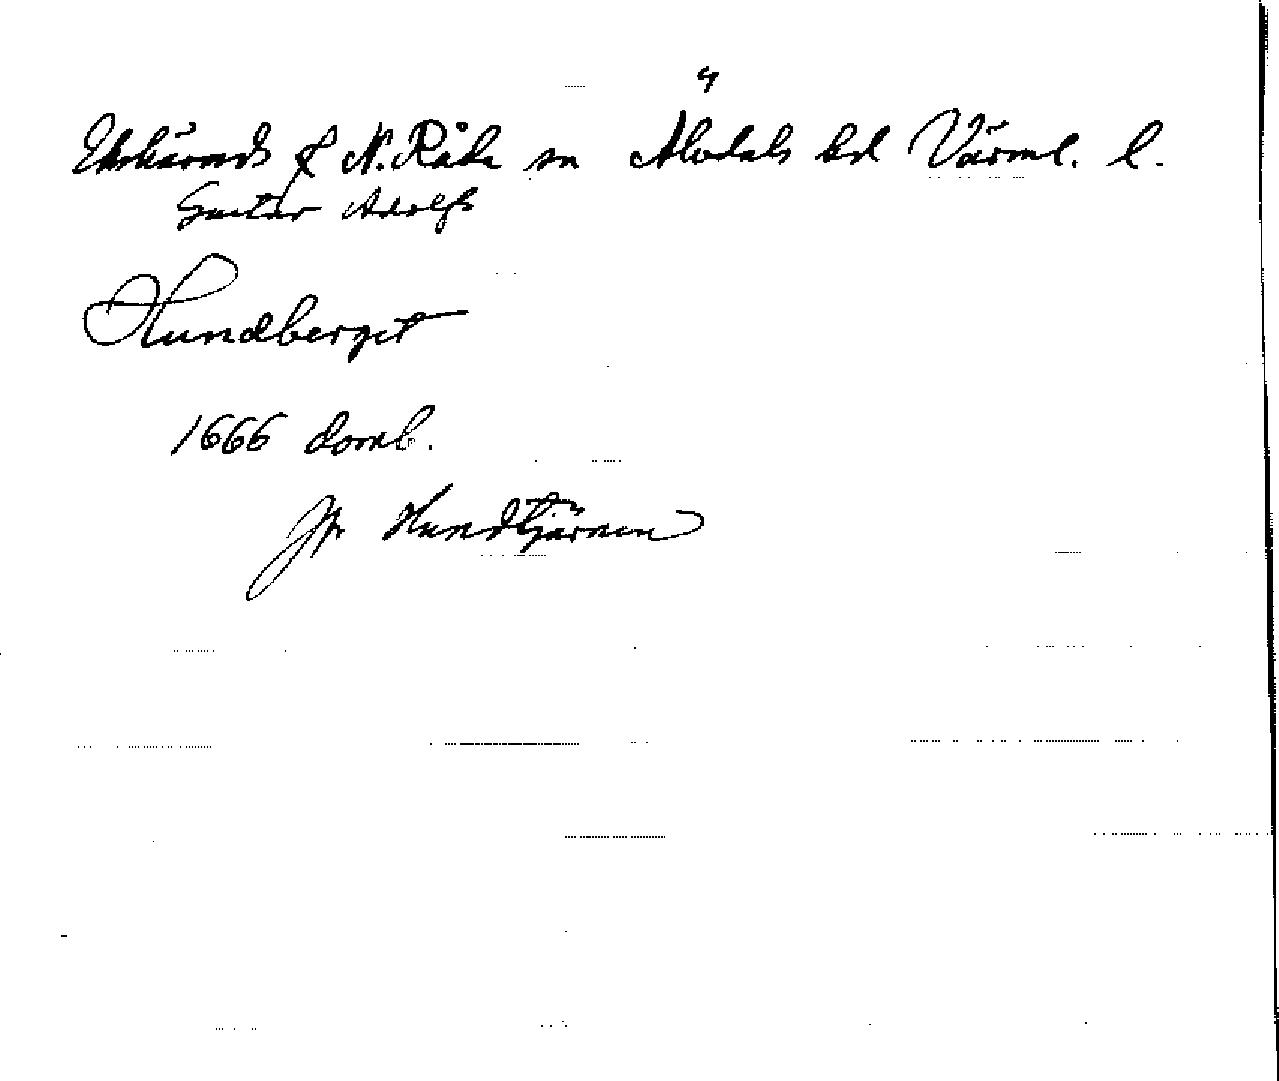 4
Ekshärads & N. Råda sn Älvdals hd Värml. l.
Gustav Adolfs
Hundberget
1666 domb.
Jfr Hundtjärnen